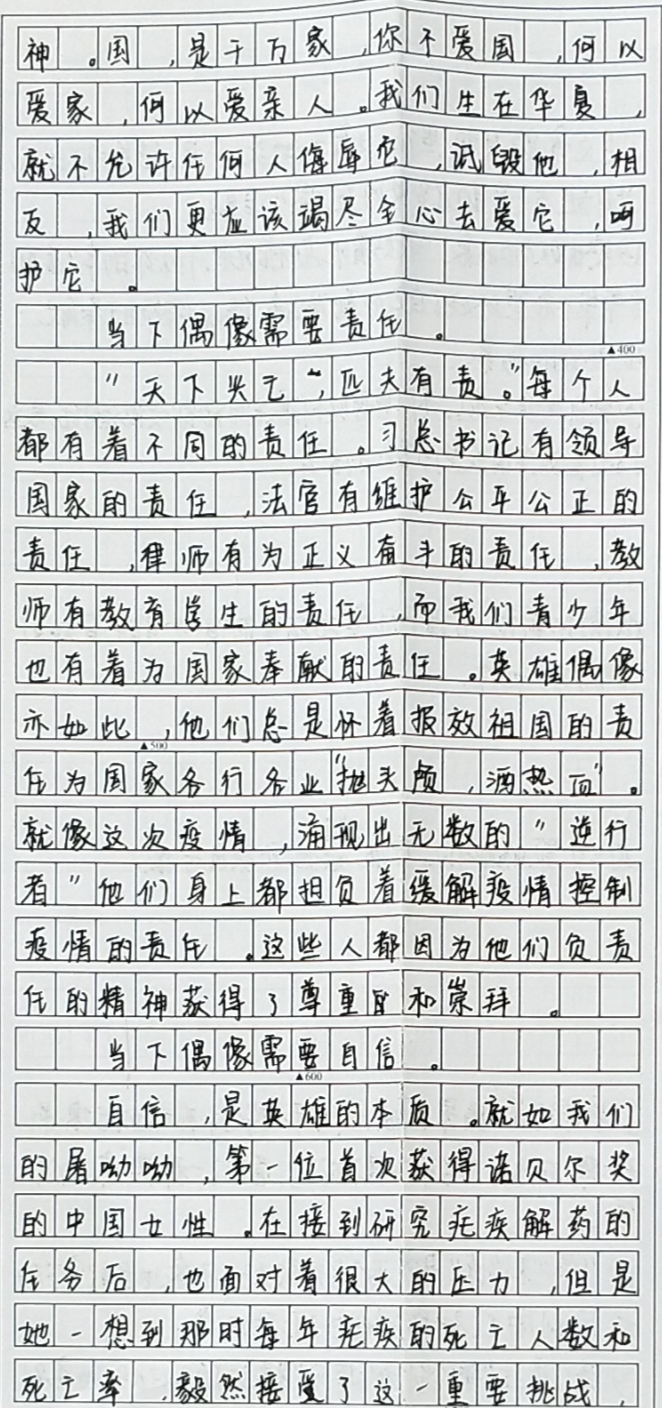 神。国,是千万家,你不爱国,何以
爱家,何以爱亲人。我们生在华夏,
就不允许任何人侮辱它,试毁他,相
反,我们更应该竭尽全心去爱它,呵
护它。
当下偶像需要责任。
▲400
"天下兴亡",匹夫有责。"每个人
都有着不同的责任。习总书记有领导
国家的责任,法官有维护公平公正的
责任,律师有为正义奋斗的责任,教
师有教育学生的责任,而我们青少年
也有着为国家奉献的责任。英雄偶像
亦如此,他们总是怀着报效祖国的责
▲500
任为国家各行各业"抛头颅,洒热血"。
就像这次疫情,涌现出无数的"逆行
者"他们身上都担负着缓解疫情控制
疫情的责任。这些人都因为他们负责
任的精神获得了尊重和崇拜。
当下偶像需要自信。
▲600
自信,是英雄的本质。就如我们
的屠呦呦,第一位首次获得诺贝尔奖
的中国女性。在接到研究疟疾解药的
任务后,也面对着很大的压力,但是
她一想到那时每年疟疾的死亡人数和
死亡率,毅然接受了这一重要挑战,